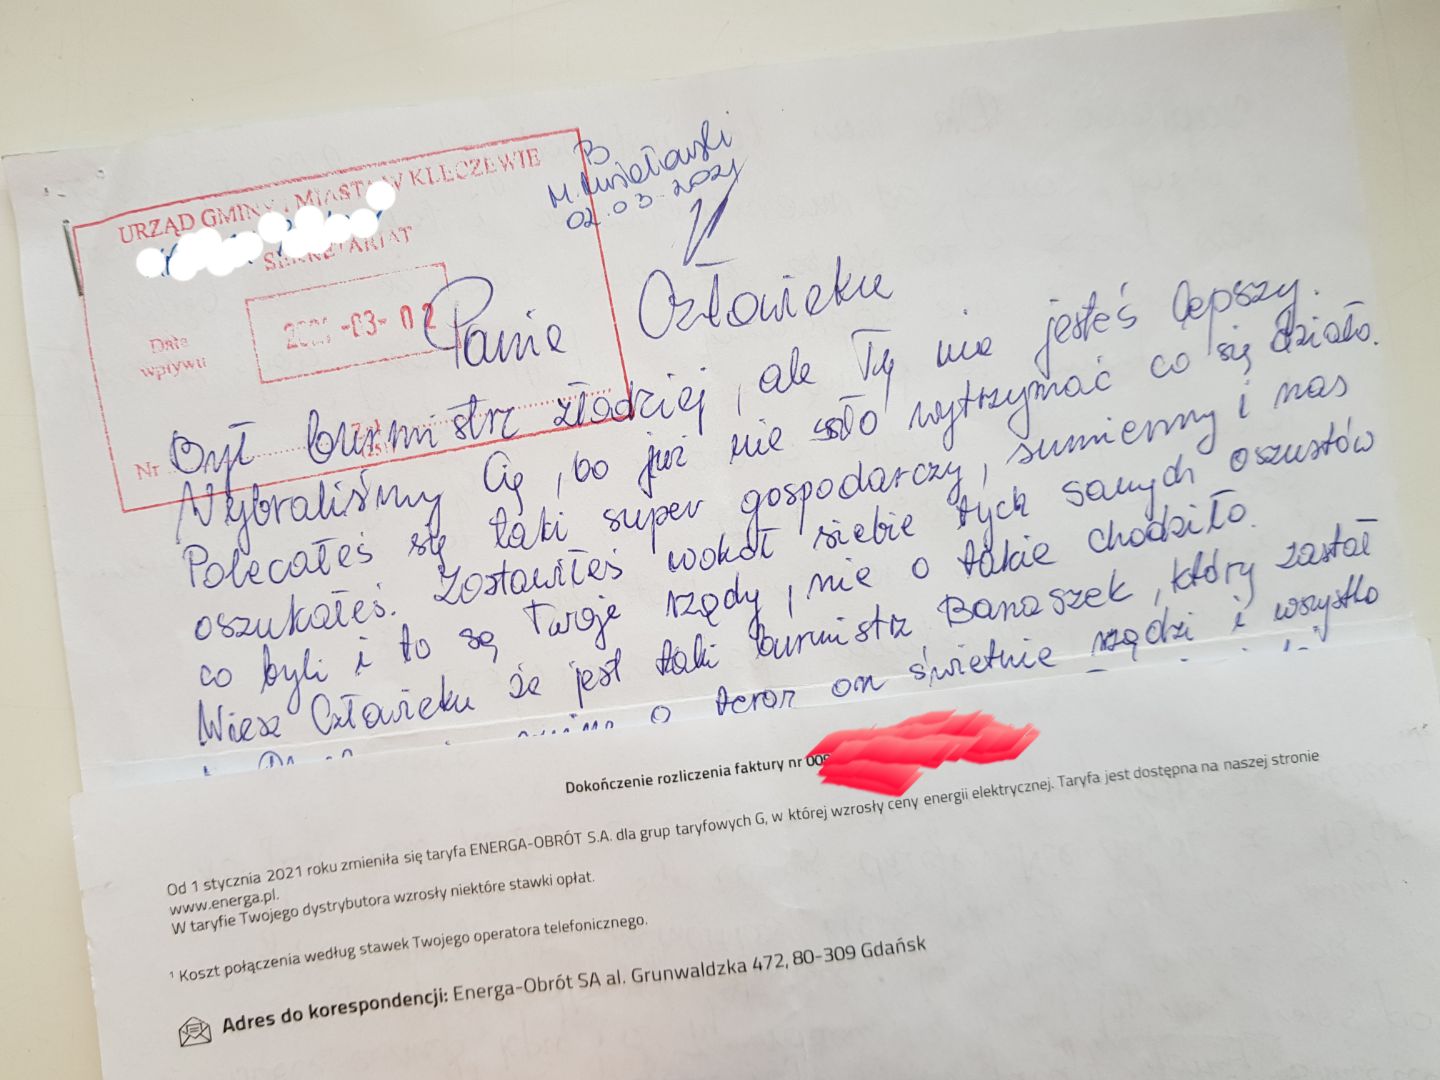 URZĄD GMINY I MIASTA W KLECZEWIE
SEKRETARIAT
Data
wpływu
2021 -03- 02
Nr
B
M. Musiałowski
02.03.2021
Panie Człowieku
Był burmistrz złodziej, ale Ty nie jesteś lepszy.
Wybraliśmy Cię, bo już nie szło wytrzymać co się działo.
Polecałeś się taki super gospodarczy, sumienny i nas
oszukałeś. Zostawiłeś wokół siebie tych samych oszustów
co byli i to są Twoje rządy, nie o takie chodziło.
Wiesz Człowieku że jest taki burmistrz Banaszek, który zastał
teraz on świetnie rządzi i wszystko
Dokończenie rozliczenia faktury nr 00
Od 1 stycznia 2021 roku zmieniła się taryfa ENERGA-OBRÓT S.A. dla grup taryfowych G, w której wzrosły ceny energii elektrycznej. Taryfa jest dostępna na naszej stronie
www.energa.pl.
W taryfie Twojego dystrybutora wzrosły niektóre stawki opłat.
¹ Koszt połączenia według stawek Twojego operatora telefonicznego.
Adres do korespondencji: Energa-Obrót SA al. Grunwaldzka 472, 80-309 Gdańsk